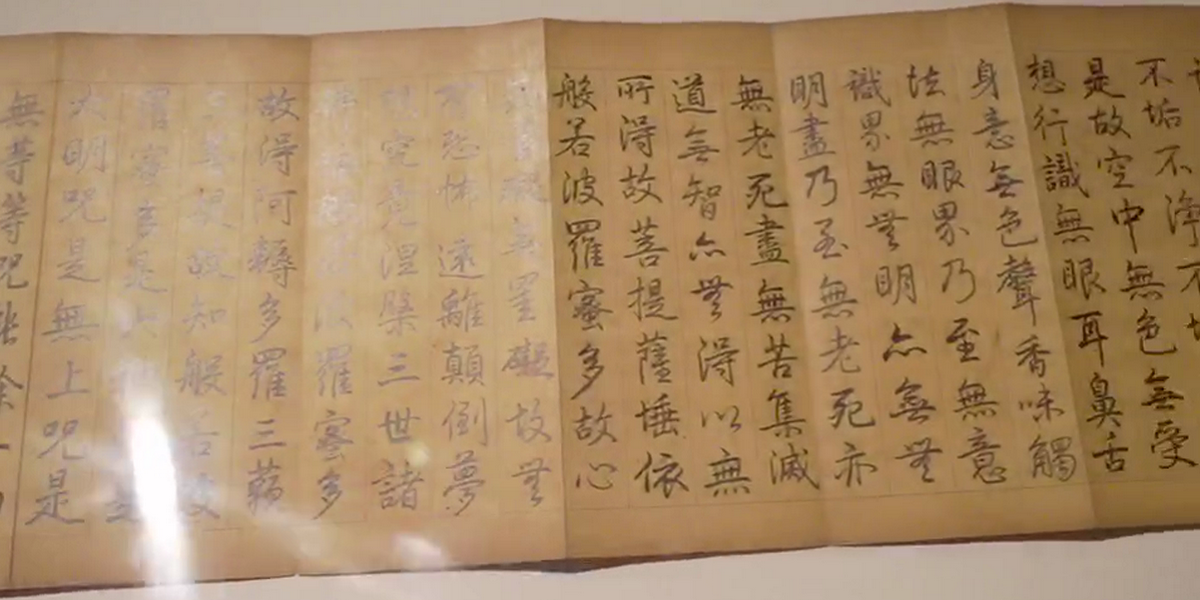 不垢不淨不
是故空中無色無受
想行識無眼耳鼻舌
身意無色聲香味觸
法無眼界乃至無意
識界無無明亦無無
明盡乃至無老死亦
無老死盡無苦集滅
道無智亦無得以無
所得故菩提薩埵依
般若波羅蜜多故心
罣礙無罣礙故無
有恐怖遠離顛倒夢
想究竟涅槃三世諸
波羅蜜多
故得阿耨多羅三藐
三菩提故知般若波
羅蜜多是大
大明咒是無上咒是
無等等咒能除一